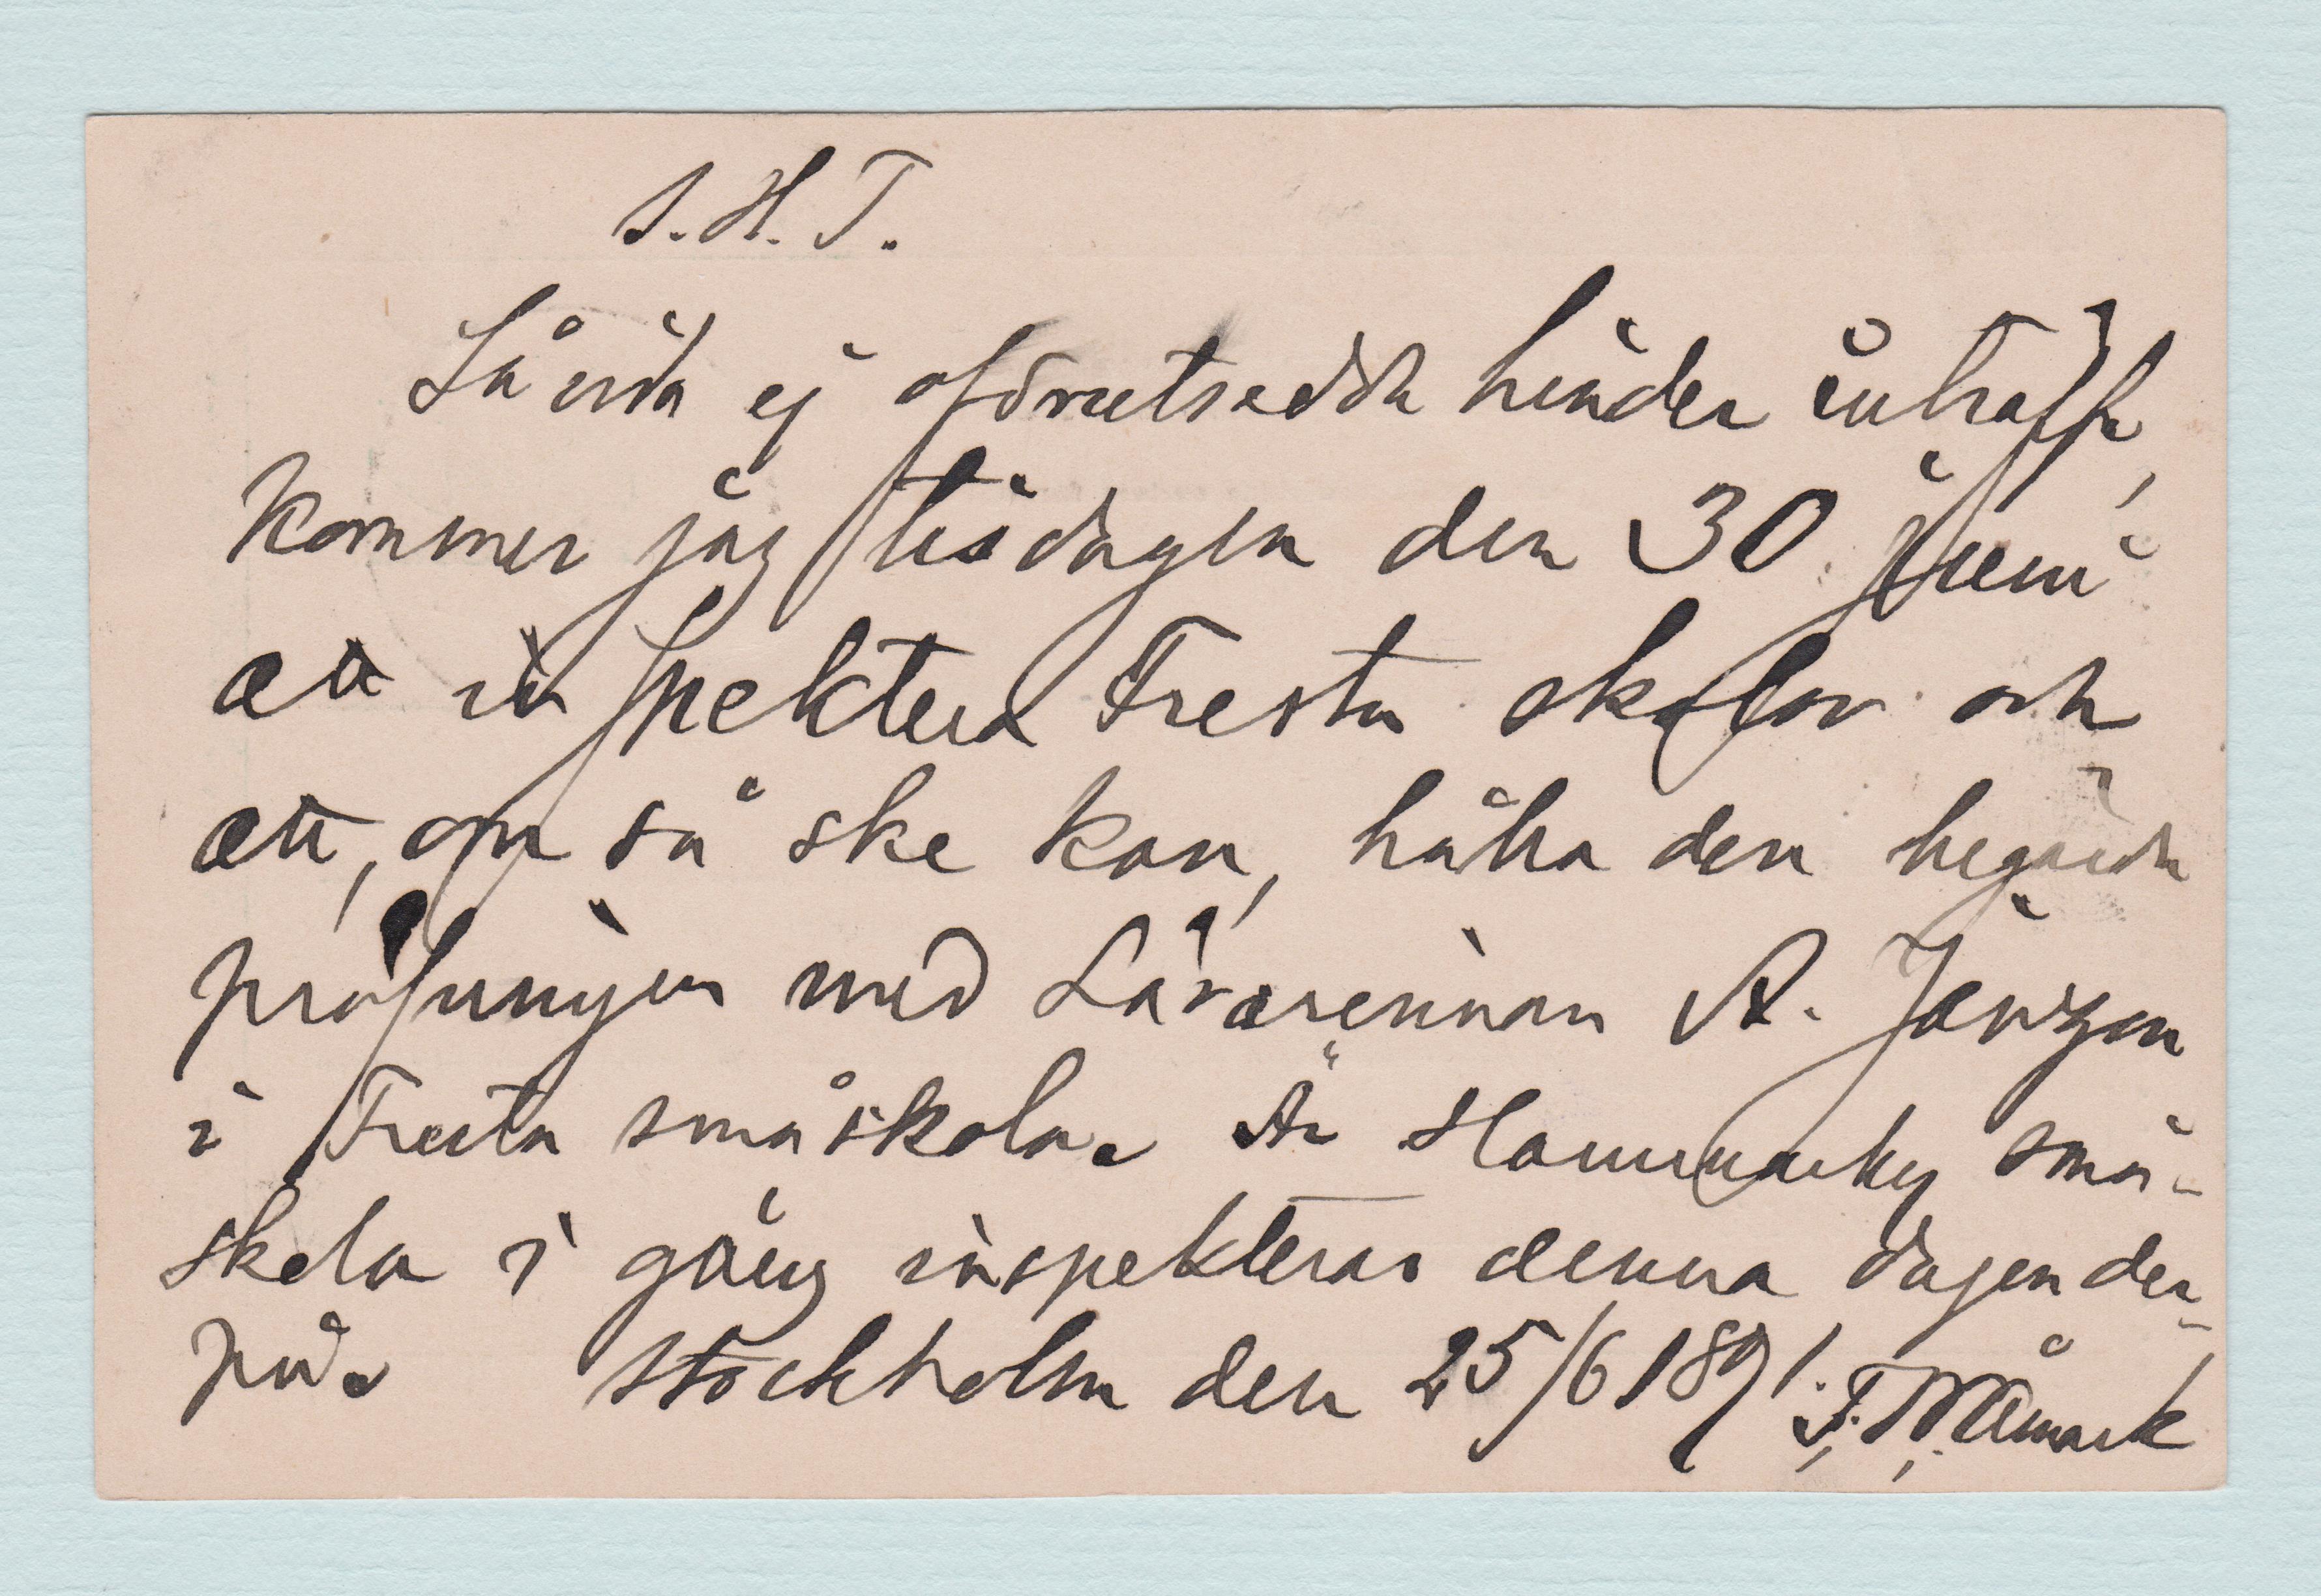 S. H. T.
Såvida ej oförutsedda hinder inträffa,
kommer jag tisdagen den 30 juni
att inspektera Fresta skolor och
att, om så ske kan, hålla den begärda
pröfningen med Lärarinnan A. Janzon
i Fresta småskola. Är Hammarby små-
skola i gång inspekteras denna dagen der-
på. Stockholm den 25/6 1891. F. W. Åmark